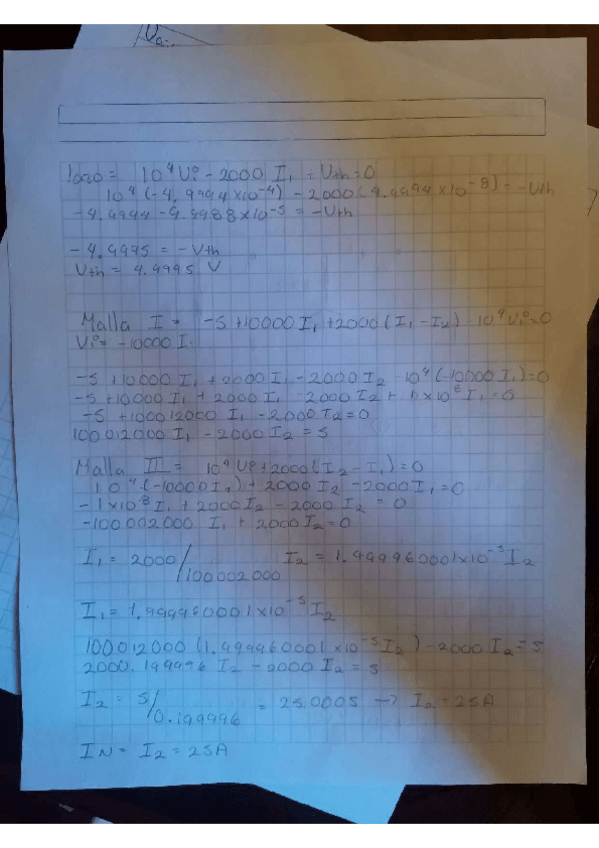 10^4 Vi - 2000 I1 - Vth = 0
10^4 (-4.9994 x10^-4) - 2000 (4.9994 x10^-8) = -Vth
-4.9994 - 9.9988 x10^-5 = -Vth
-4.9995 = -Vth
Vth = 4.9995 V
Malla I = -5 +10000 I1 +2000 (I1 - I2) - 10^4 Vi = 0
Vi = -10000 I1
-5 + 10000 I1 + 2000 I1 - 2000 I2 - 10^4 (-10000 I1) = 0
-5 + 10000 I1 + 2000 I1 - 2000 I2 + 1x10^8 I1 = 0
-5 + 100012000 I1 - 2000 I2 = 0
100012000 I1 - 2000 I2 = 5
Malla III = 10^4 Vi + 2000 (I2 - I1) = 0
10^4 (-10000 I1) + 2000 I2 - 2000 I1 = 0
-1x10^8 I1 + 2000 I2 - 2000 I2 = 0
-100002000 I1 + 2000 I2 = 0
I1 = 2000/100002000 I2 = 1.999960001x10^-5 I2
I1 = 1.999960001x10^-5 I2
100012000 (1.999960001x10^-5 I2) - 2000 I2 = 5
2000.199996 I2 - 2000 I2 = 5
I2 = 5/0.199996 = 25.0005 → I2 = 25A
IN = I2 = 25A